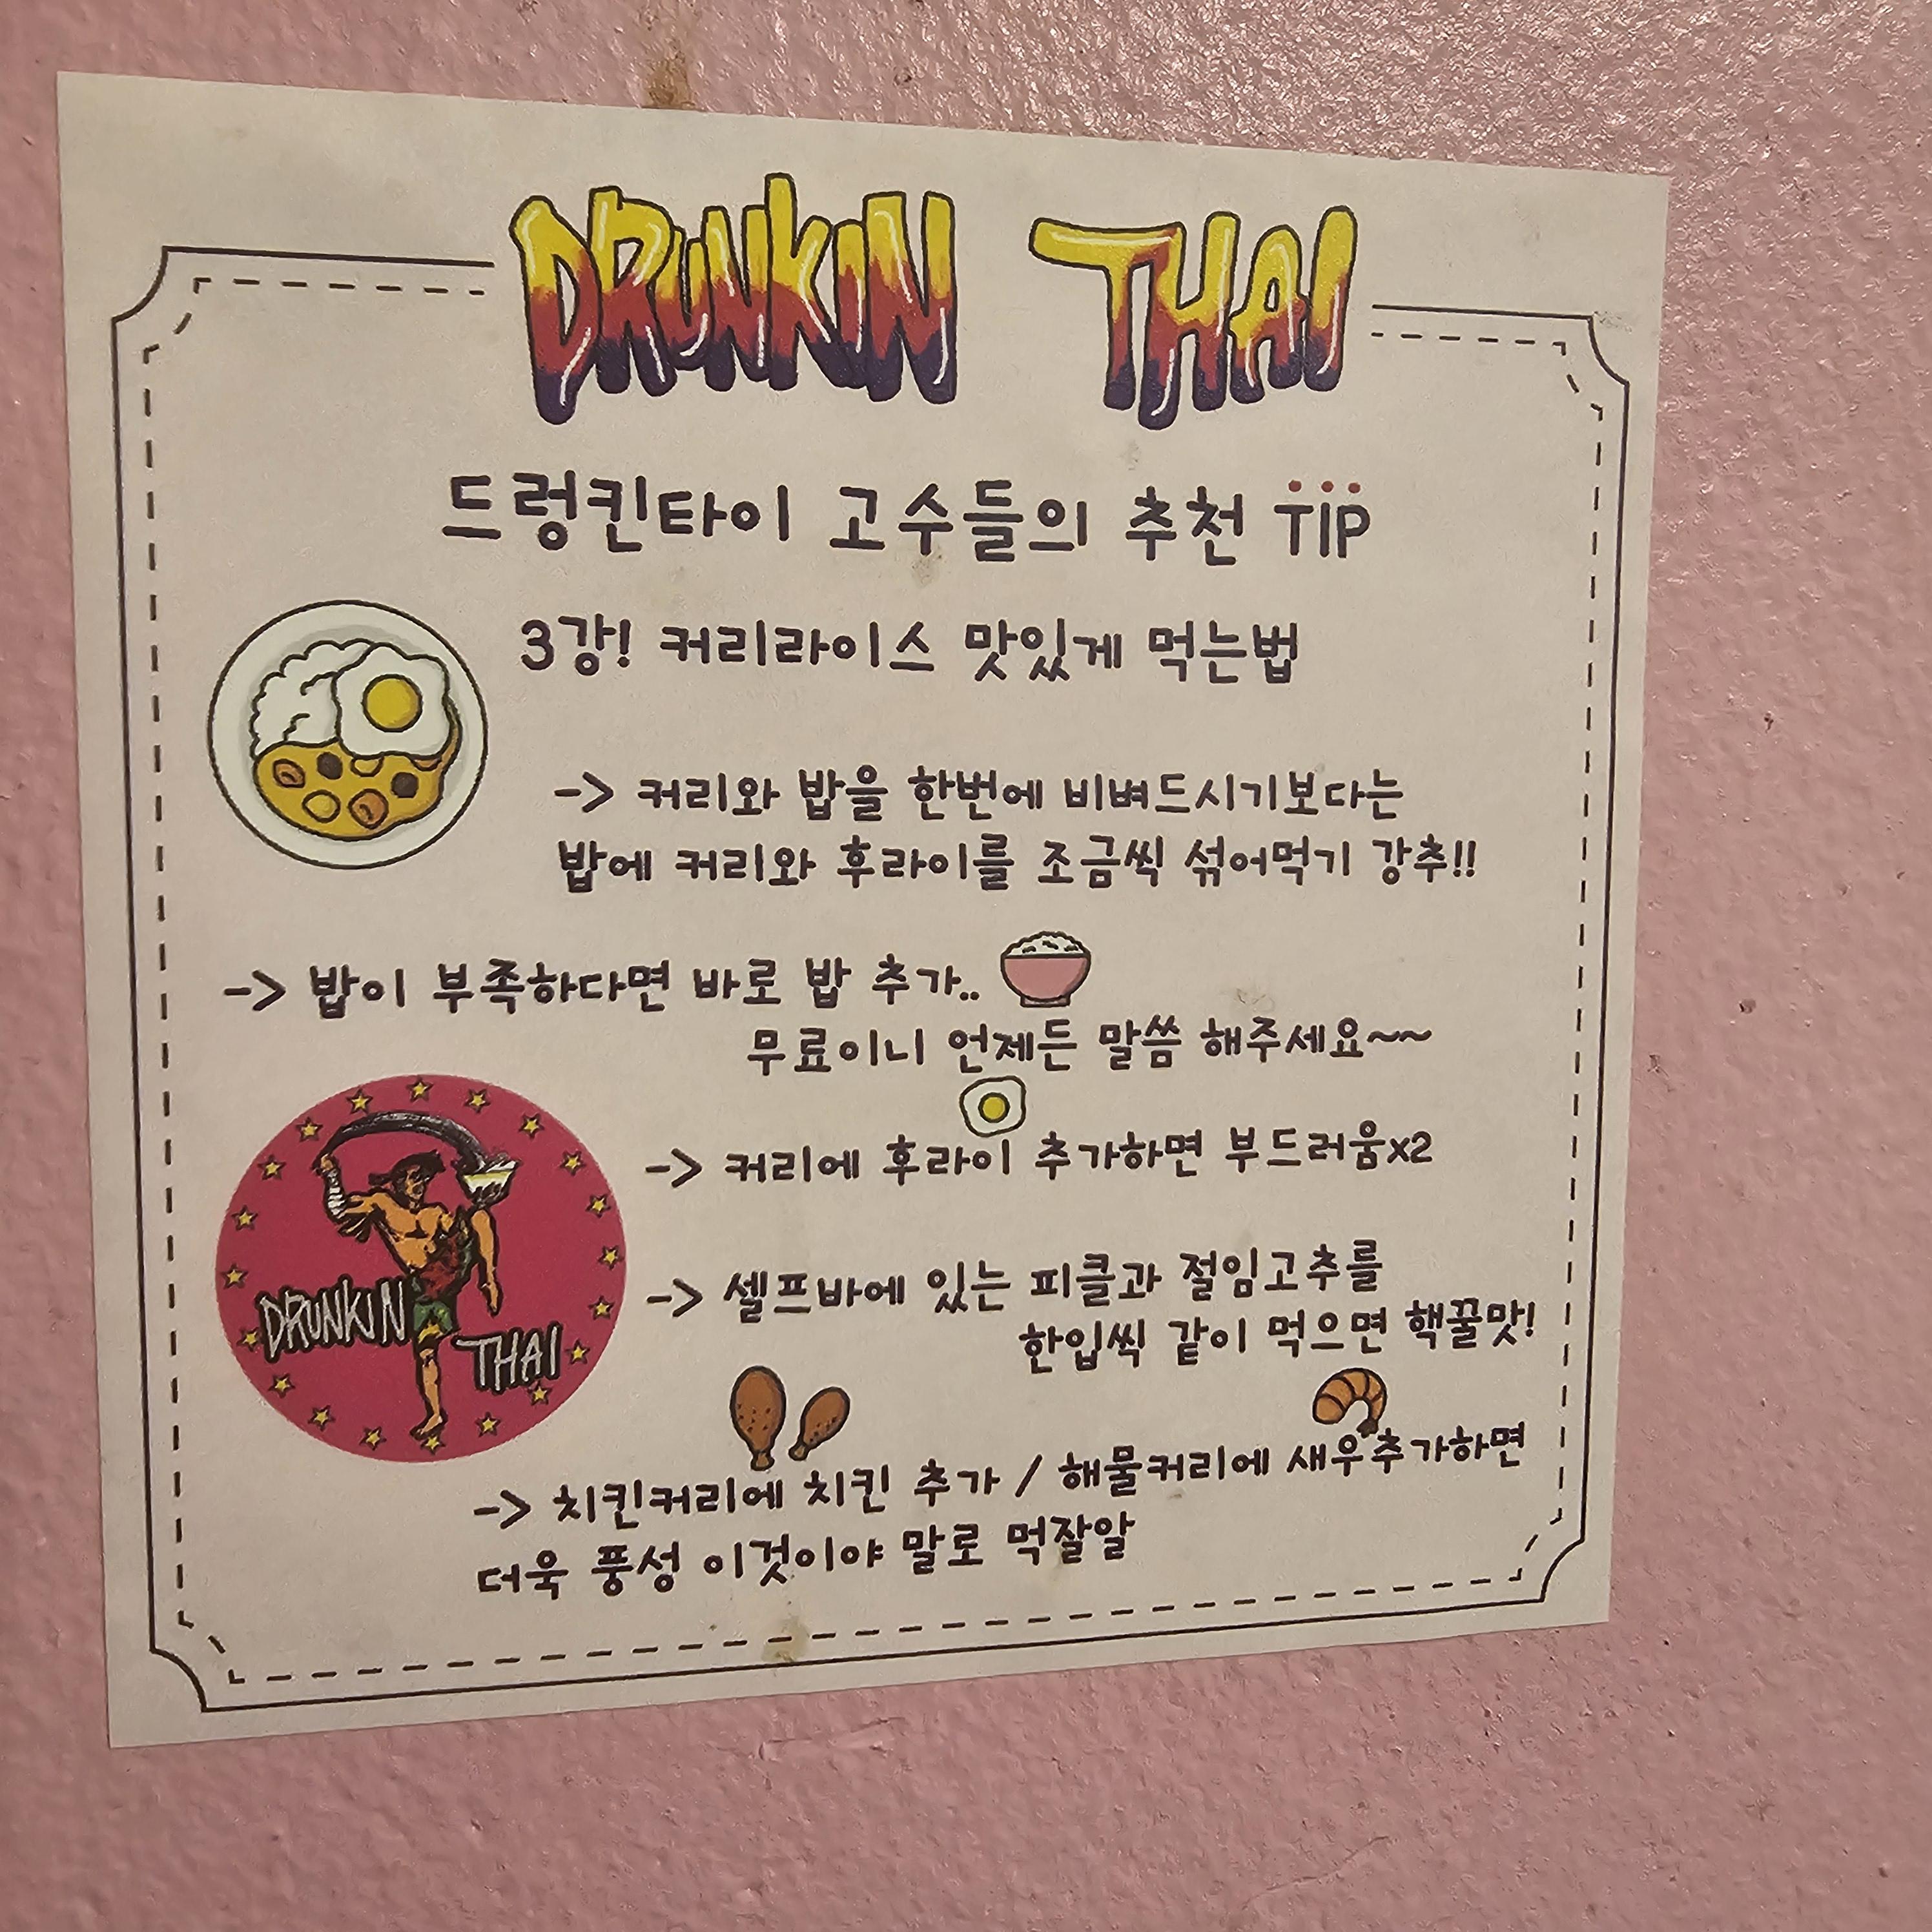 DRUNKIN THAI
드렁킨타이 고수들의 추천 TIP
3강! 커리라이스 맛있게 먹는법
-> 커리와 밥을 한번에 비벼드시기보다는
밥에 커리와 후라이를 조금씩 섞어먹기 강추!!
-> 밥이 부족하다면 바로 밥 추가..
무료이니 언제든 말씀 해주세요~~
-> 커리에 후라이 추가하면 부드러움x2
-> 셀프바에 있는 피클과 절임고추를
한입씩 같이 먹으면 핵꿀맛!
DRUNKIN
THAI
-> 치킨커리에 치킨 추가 / 해물커리에 새우추가하면
더욱 풍성 이것이야 말로 먹잘알